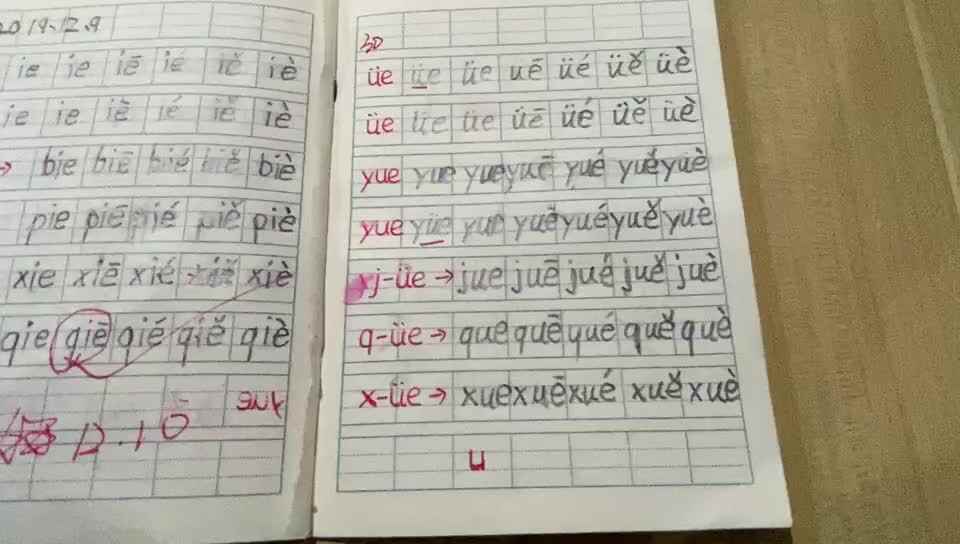 2019.12.9
ie ie iē ié iě iè
ie ie iē ié iě iè
→ bie biē bié biě biè
pie piē pié piě piè
xie xiē xié xiě xiè
qie qiē qié qiě qiè
30
üe üe üe uē üé üě üè
üe üe üe üē üé üě üè
yue yue yue yuē yué yuě yuè
yue yüe yue yuē yué yuě yuè
xj-üe → jue juē jué juě juè
q-üe → que quē yué quě què
x-üe → xue xuē xué xuě xuè
u